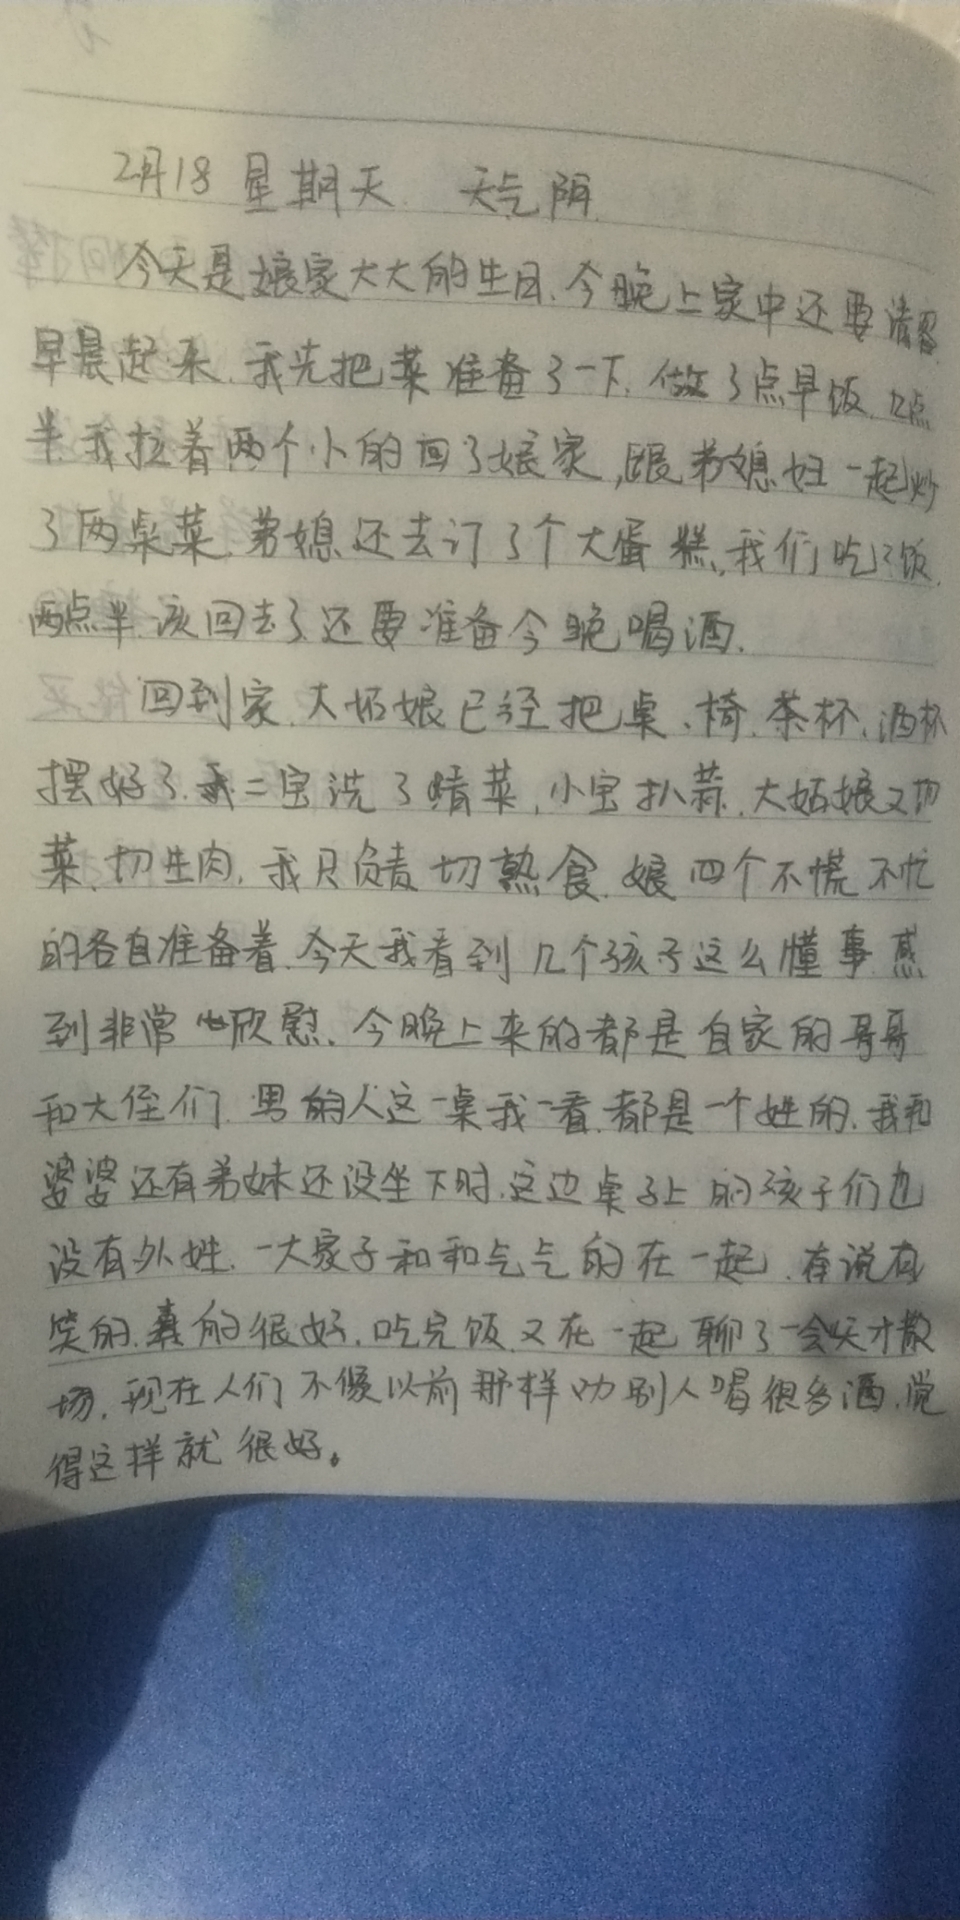 2月18 星期天 天气阴
今天是娘家大大的生日、今晚上家中还要请客
早晨起来、我先把菜准备了一下、做了点早饭、几点
半、我拉着两个小的回了娘家,跟弟媳妇一起炒
了两桌菜、弟媳还去订了个大蛋糕、我们吃了饭、
两点半、该回去了还要准备今晚喝酒、
回到家、大姑娘已经把桌、椅、茶杯、酒杯
摆好了、我二宝洗了晴菜、小宝扒蒜、大姑娘又切
菜、切生肉、我只负责切熟食、娘四个不慌不忙
的各自准备着、今天我看到几个孩子这么懂事感
到非常欣慰、今晚上来的都是自家的哥哥
和大侄们、男的人这一桌我一看、都是一个姓的、我和
婆婆还有弟妹还没坐下时、这边桌子上的孩子们也
没有外姓、一大家子和和气气的在一起、有说有
笑的、真的很好、吃完饭又在一起聊了一会天才散
场、现在人们不像以前那样劝别人喝很多酒、觉
得这样就很好。